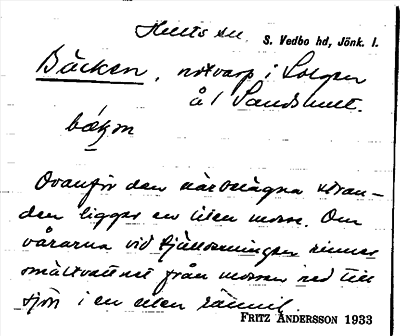 Hults sn. S. Vedbo hd, Jönk. l.
Bäcken, notvarp i
å 1 Sandhult.
Ovanför den närbelägna stran-
den ligger en liten mosse. Om
vårarna vid tjällossningen rinner
smältvattnet från mossen ned till
sjön i en liten rännil.
FRITZ ANDERSSON 1933